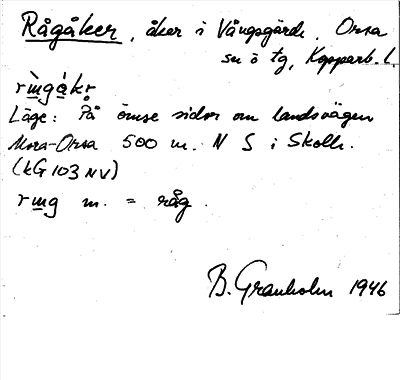 Rågåker, åker i Vångsgärde. Orsa
sn ö tg, Kopparb. l.
rɯ̀gå̀kr̥
Läge: På ömse sidor om landsvägen
Mora-Orsa 500 m. N S i Skolh.
(kG 103 NV)
rɯg m. = råg.
B. Granholm 1946